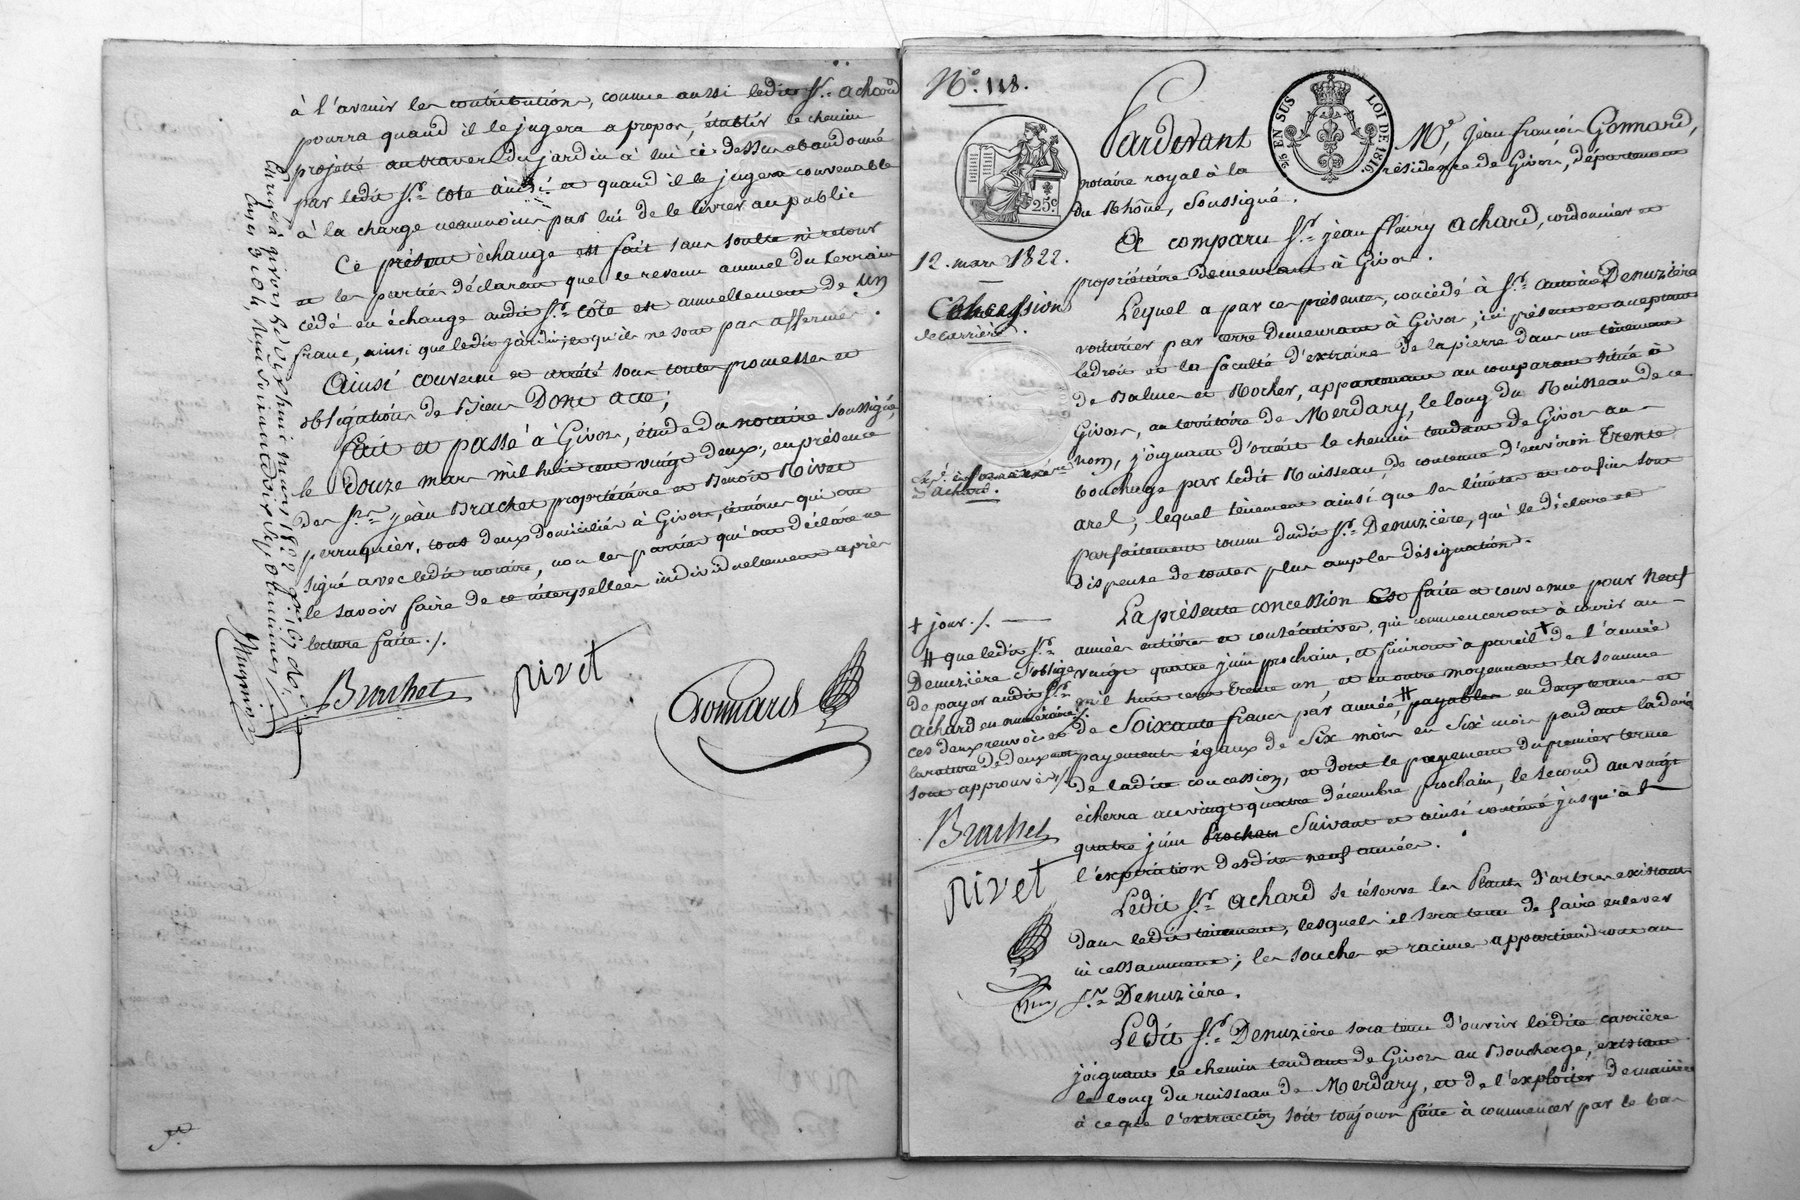 à l'avenir les contributions, comme aussi ledit Sr. Achard
pourra quand il le jugera a propos, établir le chemin
projetté au travers du jardin à lui ci dessus abandonné
par ledit Sr. Cote ainsi et quand il le jugera convenable
à la charge néanmoins par lui de le livrer au public
Ce présent échange est fait sans soulte ni retour
et les parties déclarent que le revenu annuel du terrain
cédé en échange audit Sr. Côte est annuellement de un
franc, ainsi que ledit jardin; et qu'ils ne sont pas affermés.
Ainsi convenu et arrêté sous toutes promesses et
obligations de Biens Dont acte;
fait et passé à Givors, étude du notaire soussigné,
le Douze mars mil huit cent vingt deux, en présence
des Srs. Jean Brachet propriétaire et Benoît Rivet
perruquier, tous deux domiciliés à Givors, témoins qui ont
signé avec ledit notaire, non les parties qui ont déclaré ne
le savoir faire de ce interpellées individuellement après
lecture faite ./.
Brachet
Rivet
Gonnard
Enregé à Givors le
mars 1822
N°. 118.
25 EN SUS
LOI DE 1816.
25c
Pardevant Me. Jean François Gonnard,
notaire royal à la résidence de Givors, département
du Rhône, soussigné.
12. mars 1822.
Concession
de carrière.
A comparu Sr. jean fleury Achard, cordonnier et
propriétaire demeurant à Givors.
Lequel a par ces présentes, concédé à Sr. antoine Denuzière
voiturier par terre demeurant à Givors, ici présent et acceptant
le droit et la faculté d'extraire de la pierre dans un tènement
de Balmes et Rocher, appartenant au comparant situé à
Givors, au territoire de Merdary, le long du Ruisseau de ce
nom, joignant d'orient le chemin tendant de Givors au
bouchage par ledit Ruisseau, de contenue d'environ trente
ares, lequel tènement ainsi que ses limites et confins sont
parfaitement connu dudit Sr. Denuzière, qui le déclare et
dispense de toutes plus amples désignation.
d'achard.
La présente concession est faite et convenue pour neuf
années entières et consécutives, qui commenceront à courir au
vingt quatre juin prochain, et finiront à pareil + de l'année
mil huit cent trente un, et en outre moyennant la somme
de Soixante francs par année, # payables en deux termes et
payements égaux de Six mois en Six mois pendant la durée
de ladite concession, et dont le payement du premier terme
écherra au vingt quatre décembre prochain, le second au vingt
quatre juin prochain Suivant et ainsi continué jusqu'à
l'expiration desdites neuf années.
+ jour ./.
# que ledit Sr.
Denuzière s'oblige
de payer audit Sr.
Achard en numéraire ./.
ces deux renvois et
la rature de deux mots
sont approuvés ./.
Brachet
Rivet
Ledit Sr. Achard se réserve les Plants d'arbres existant
dans ledit tènement, lesquels il sera tenu de faire enlever
incessamment; les souches et racines appartiendront au
Sr. Denuzière.
Ledit Sr. Denuzière sera tenu d'ouvrir ladite carrière
joignant le chemin tendant de Givors au Bouchage, existant
le long du ruisseau de Merdary, et de l'exploiter de manière
à ce que l'extraction soit toujours faite à commencer par le bas